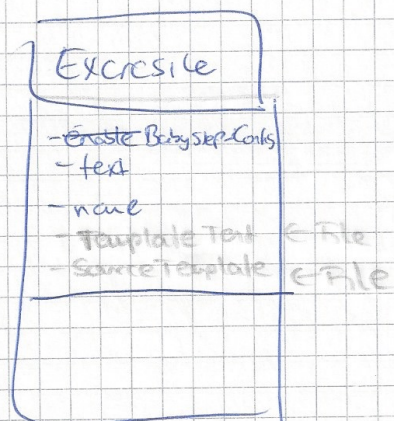 Excrcsile
- enable BabyStep-Config
- text
- name
- Template Text ← File
- Source Template ← File